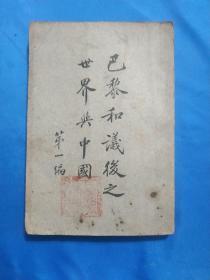 巴黎和議後之
世界與中國
第一編